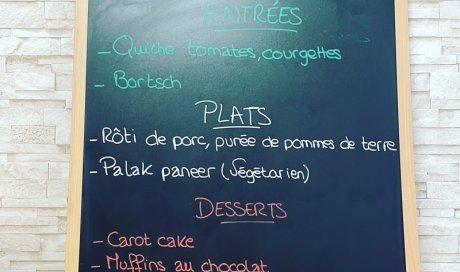 ENTRÉES
- Quiche tomates, courgettes
- Bortsch
PLATS
- Rôti de porc, purée de pommes de terre
- Palak paneer (Végétarien)
DESSERTS
- Carot cake
- Muffins au chocolat